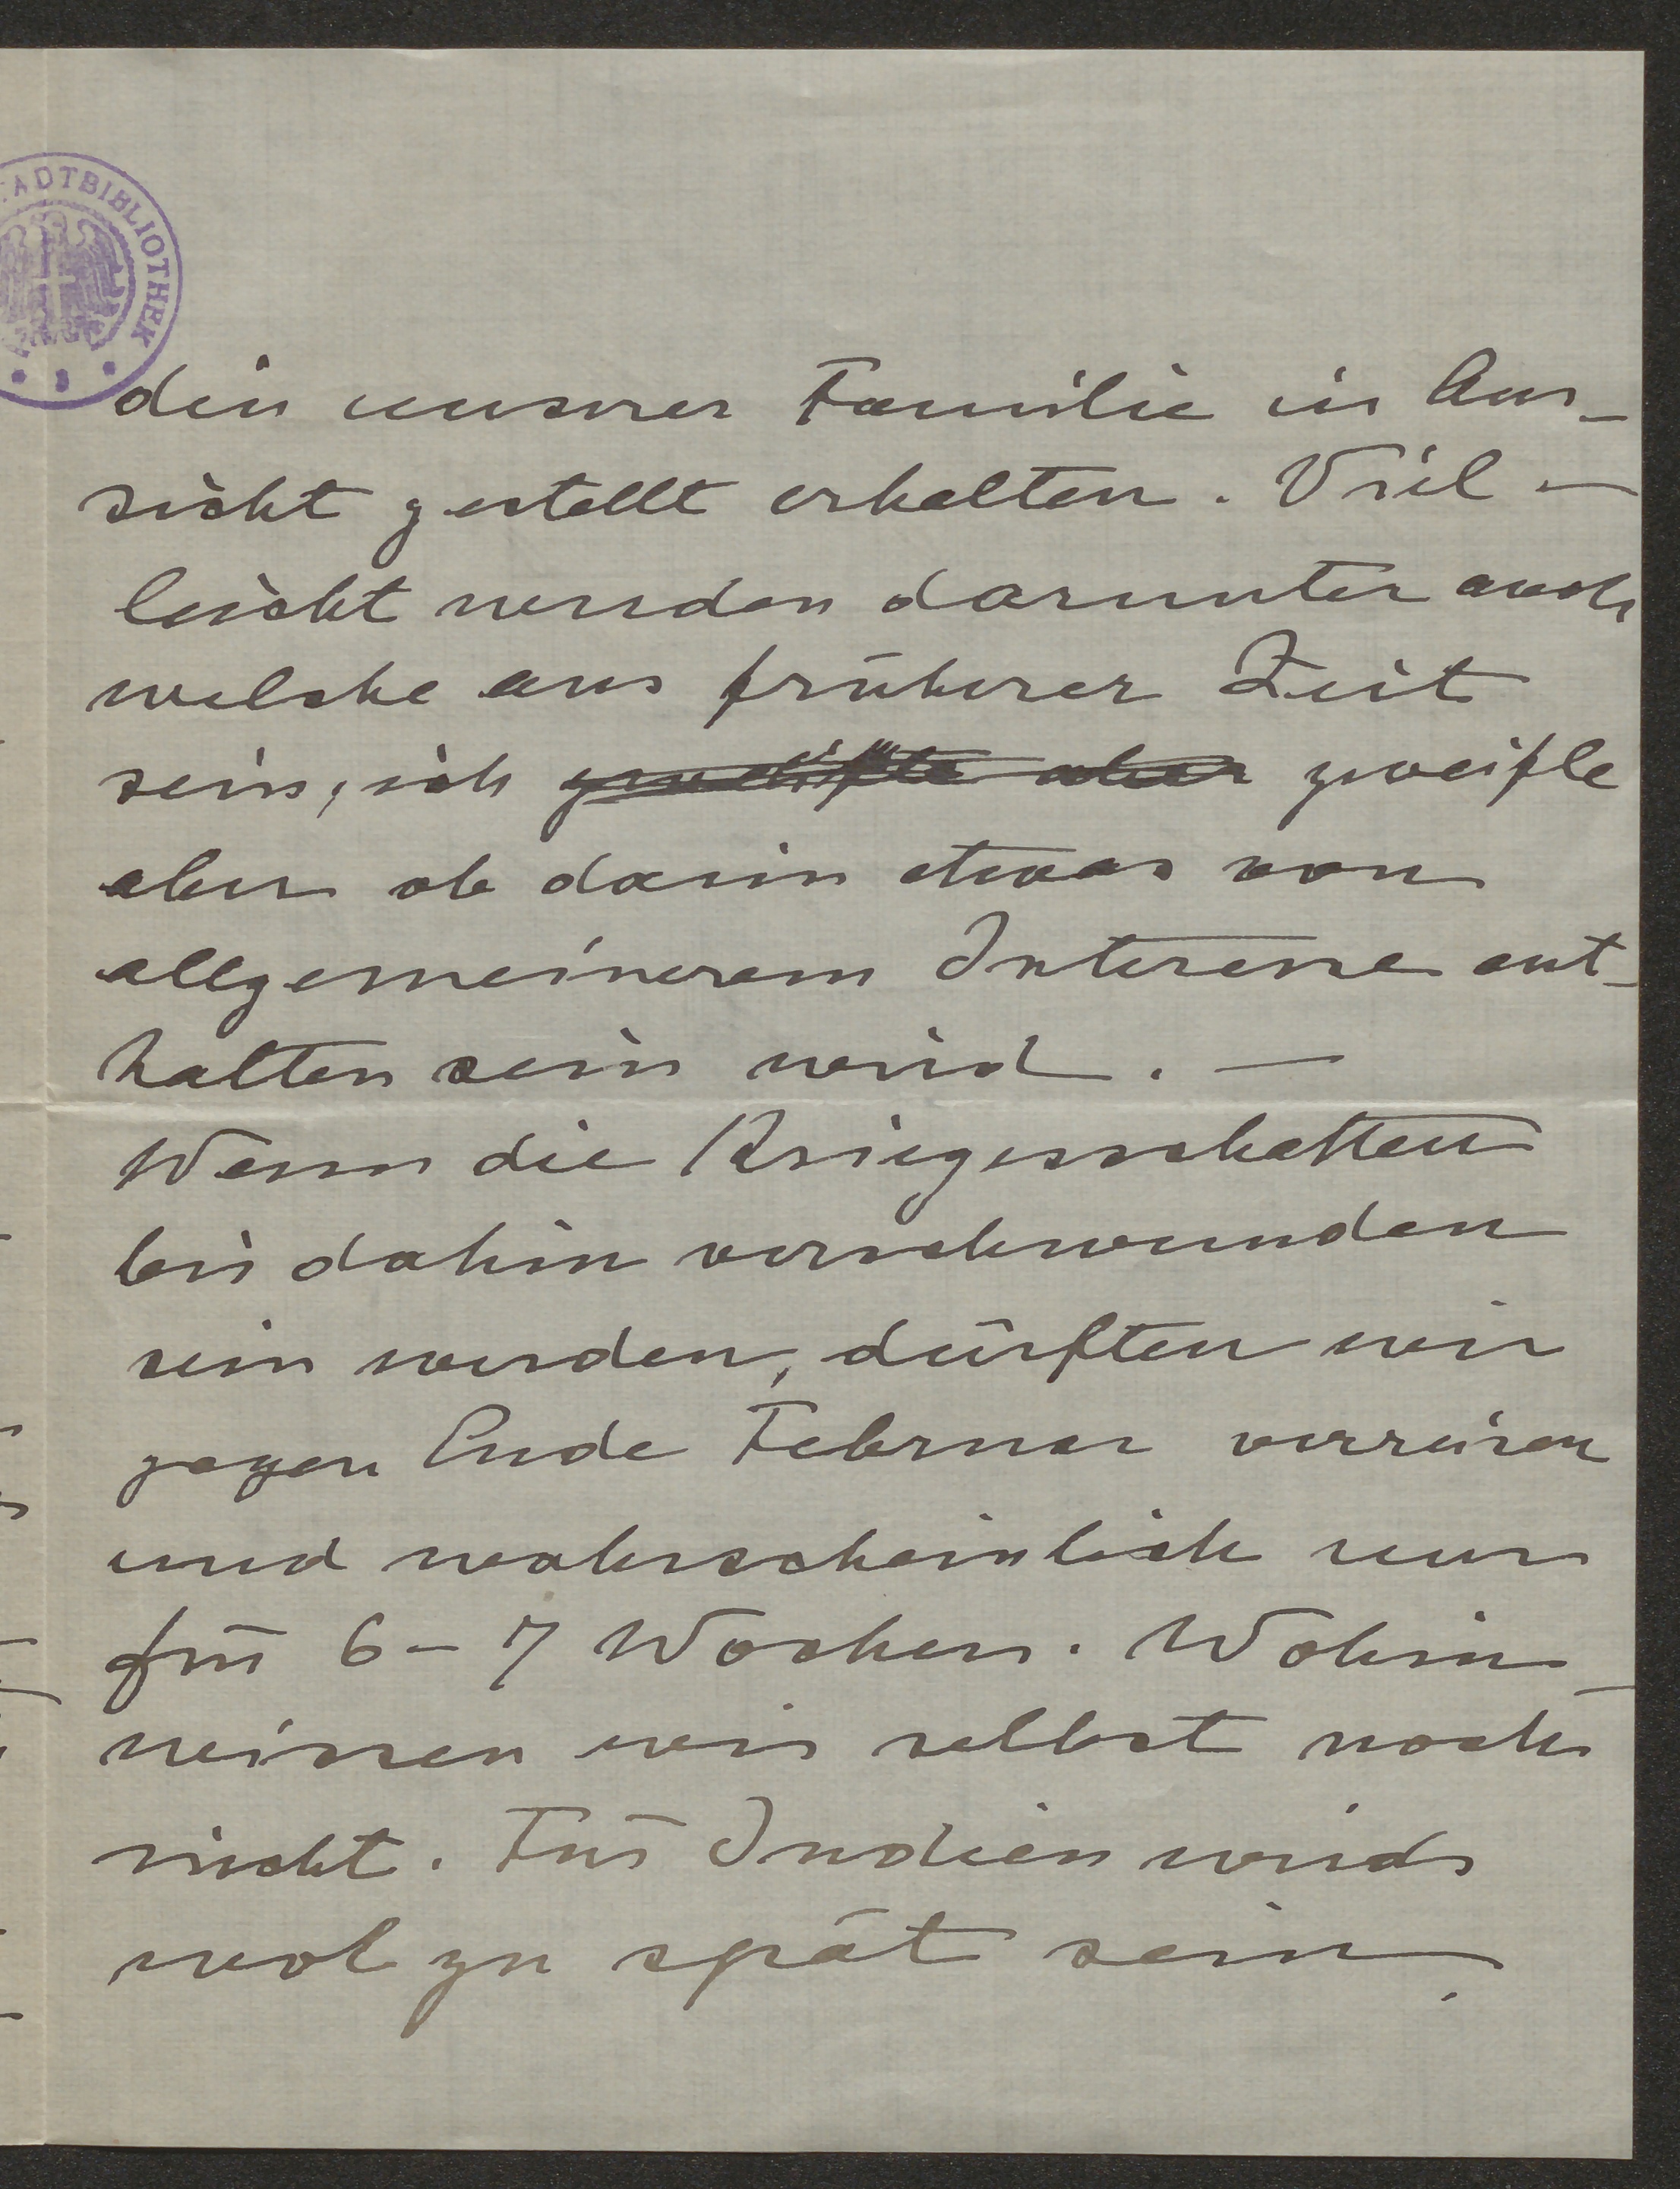 ADTBIBLIOTHEK
den unserer Familie in Aus-
sicht gestellt erhalten. Viel-
leicht werden darunter auch
welche aus früherer Zeit
sein, ich zweifle aber zweifle
aber ob darin etwas von
allgemeinerem Interesse ent-
halten sein wird. —
Wenn die Kriegsschatten
bis dahin verschwunden
sein werden, dürften wir
gegen Ende Februar verreisen
und wahrscheinlich nur
für 6-7 Wochen. Wohin
weissen wir selbst noch
nicht. Für Indien wirds
wol zu spät sein.